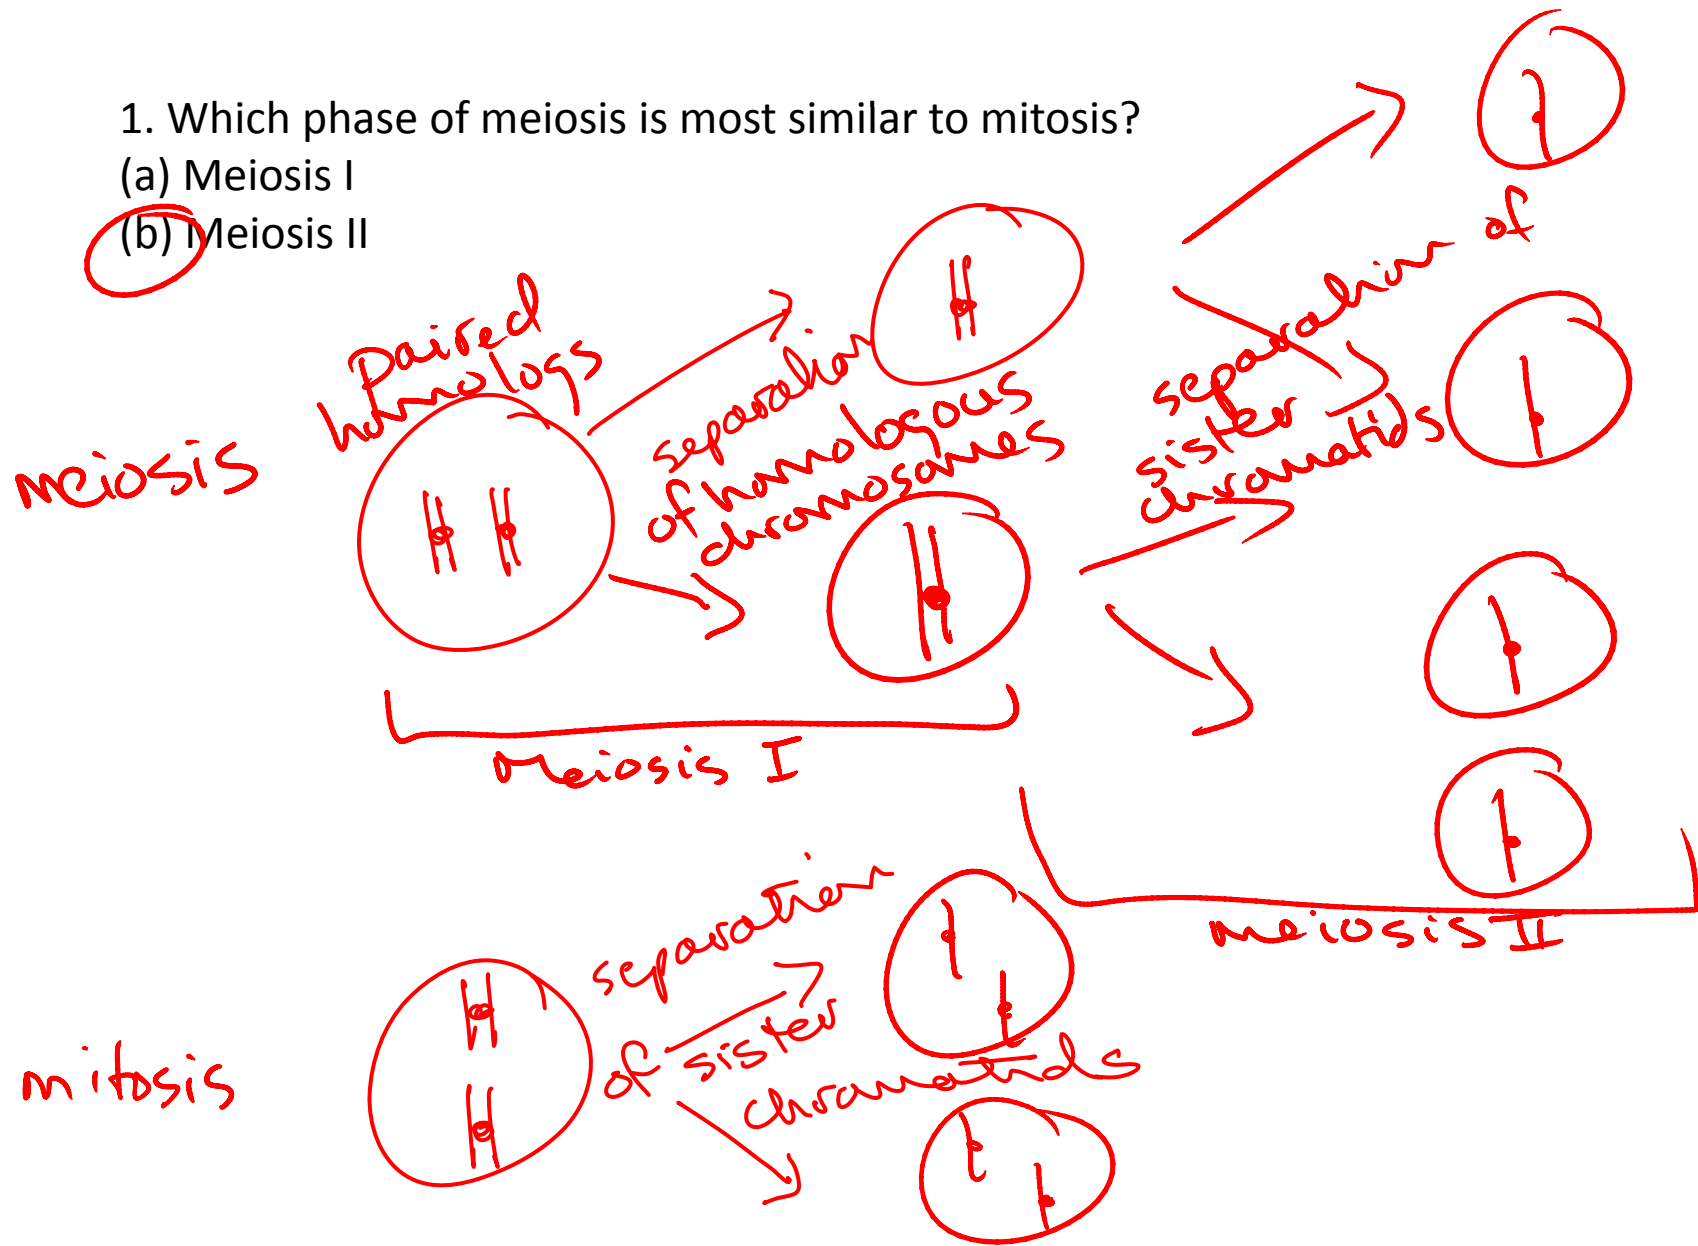 1. Which phase of meiosis is most similar to mitosis?
(a) Meiosis I
(b) Meiosis II
meiosis
paired
homologs
separation
of homologous
chromosomes
separation of
sister
chromatids
Meiosis I
meiosis II
mitosis
separation
of sister
chromatids